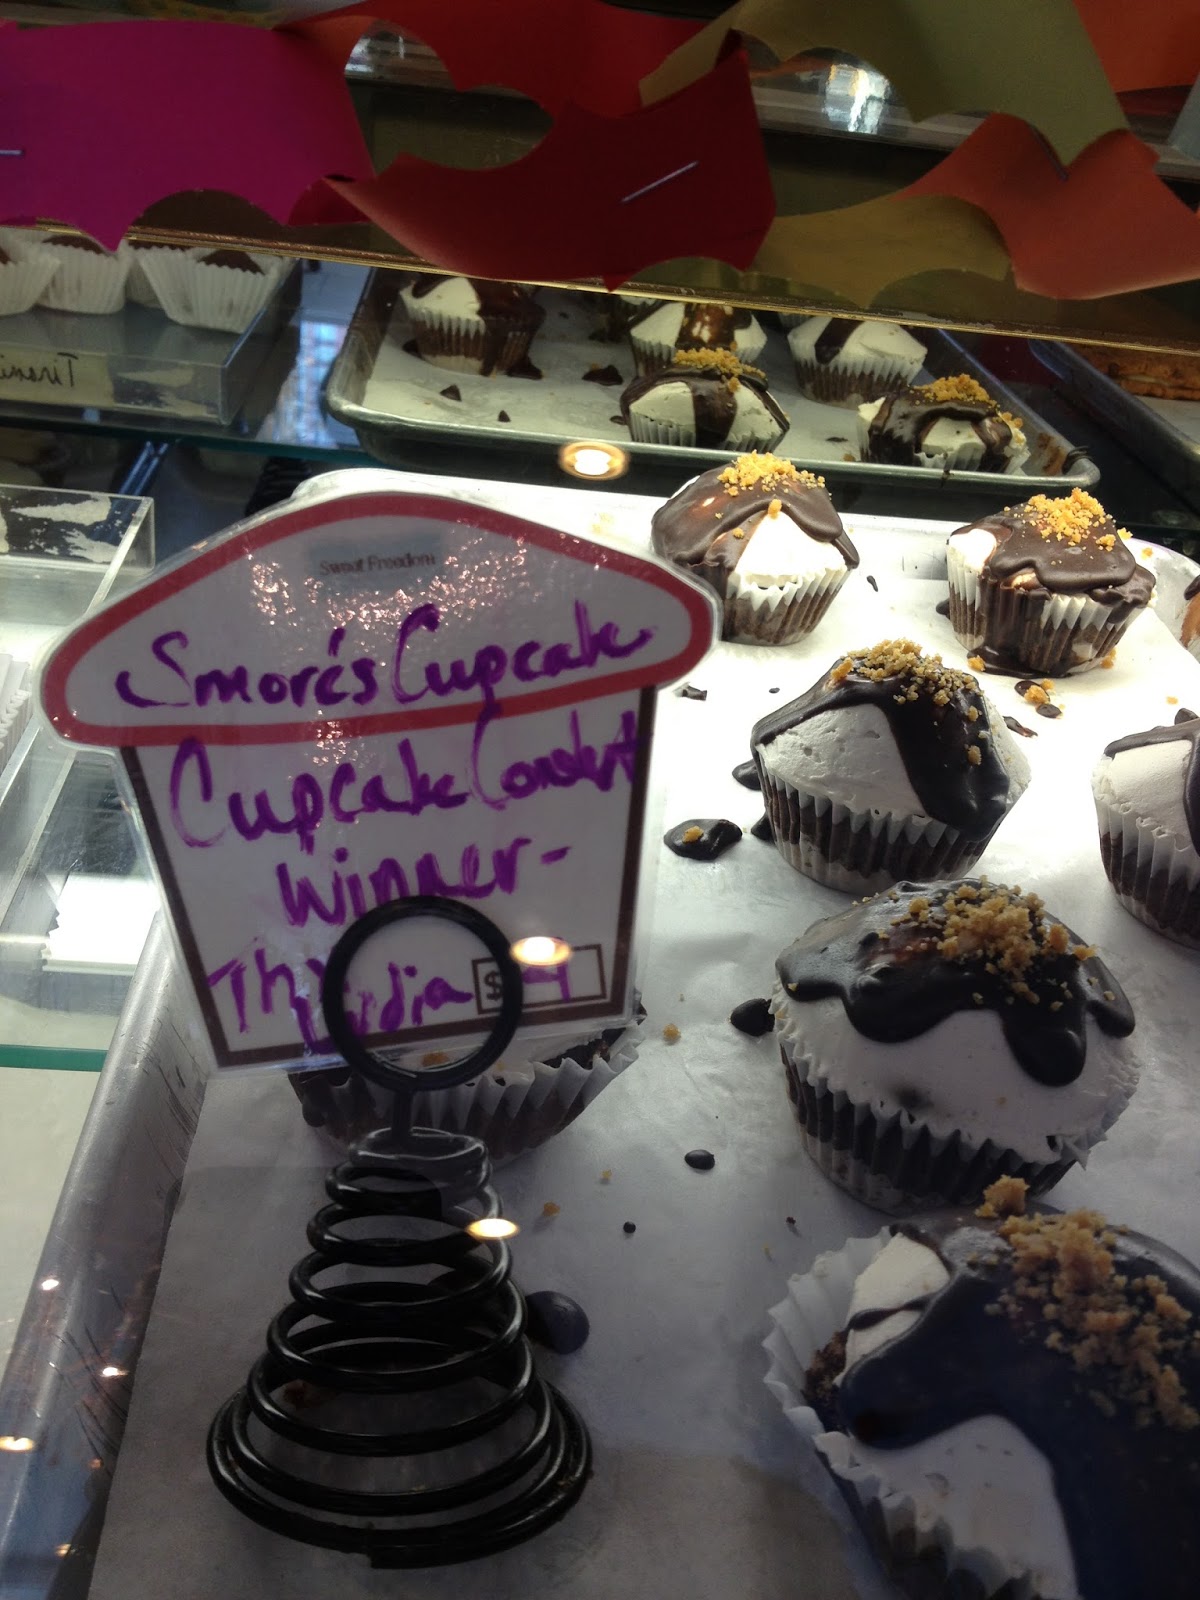 Sweet Freedom
Smore's Cupcake
Cupcake Contest
Winner-
Lydia $4